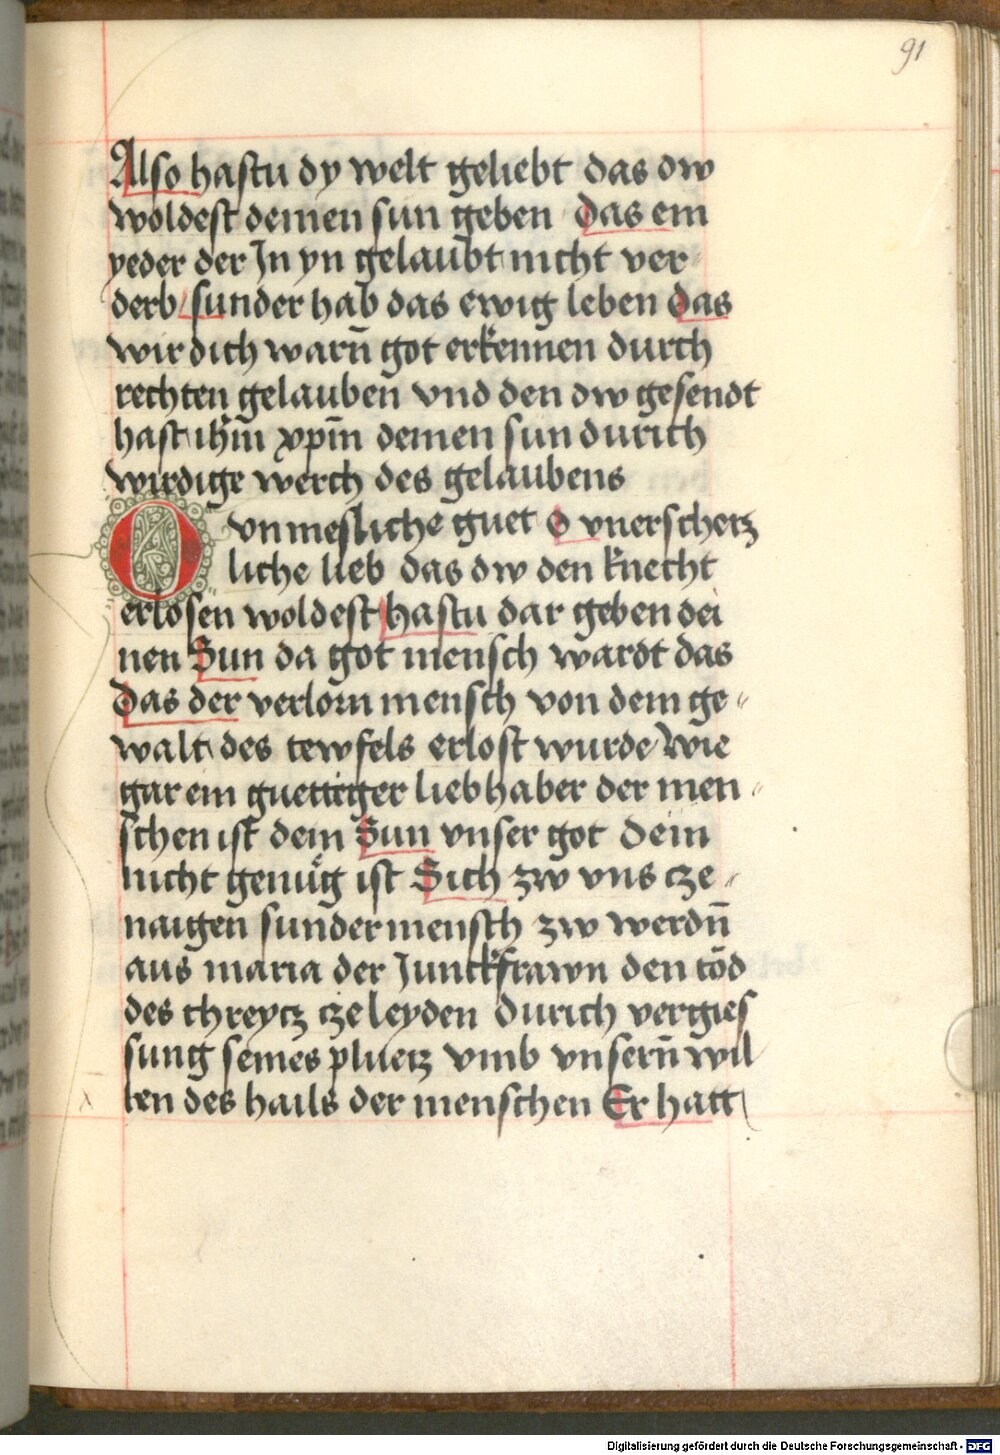 91
Also hastu dy welt geliebt das dw
woldest deinen sun geben das ein
yeder der In yn gelaubt nicht ver
derb / sunder hab das ewig leben das
wir dich warn̄ got erkennen durch
rechten gelauben̄ vnd den dw gesendt
hast ihm̄ xpm̄ deinen sun durich
wirdige werch des gelaubens
O vnmesliche guet O vnerschetz
liche lieb das dw den knecht
erlosen woldest hastu dar geben dei
nen Sun da got mensch wardt das
das der verlorn mensch von dem ge〃
walt des tewfels erlost wurde Wie
gar ein guettiger liebhaber der men〃
schen ist dein Sun vnser got Dem
nicht genuͤg ist Sich zw vns cze〃
naigen sunder mensch zw werdn̄
aus maria der Junckfrawn den tod
des chreytz cze leyden durich vergies
sung seines pluetz vmb vnsern̄ wil
len des hails der menschen Er hatt
Digitalisierung gefördert durch die Deutsche Forschungsgemeinschaft - DFG